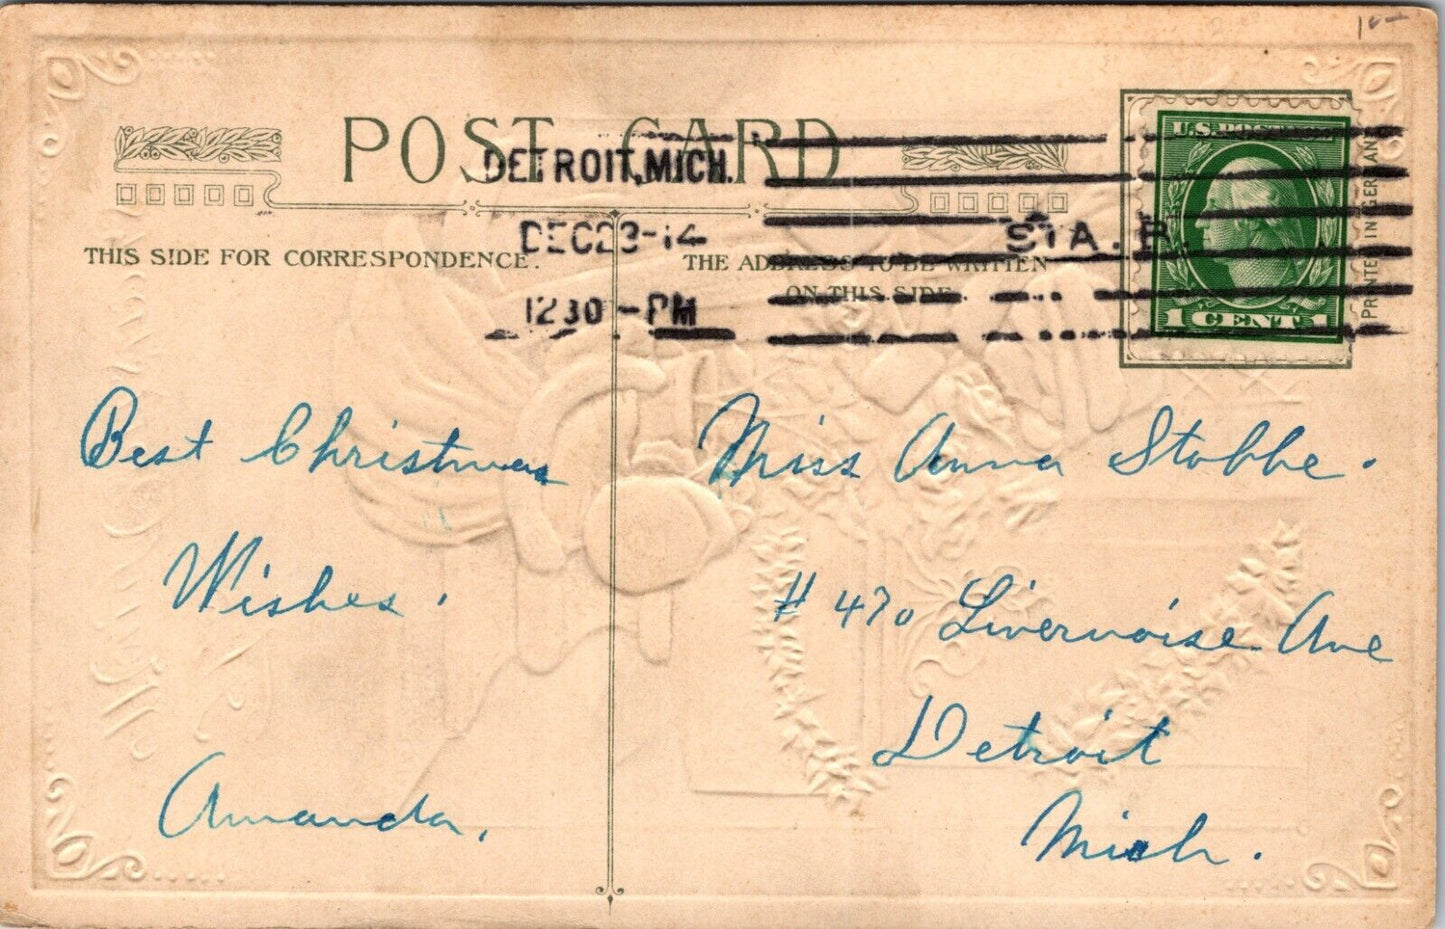 POST CARD
DETROIT, MICH.
DEC 23-14
12 30 - PM
STA. R.
U.S. POSTAGE
1 CENT 1
PRINTED IN GERMANY
THIS SIDE FOR CORRESPONDENCE.
THE ADDRESS TO BE WRITTEN
ON THIS SIDE.
Best Christmas
Wishes.
Amanda.
Miss Anna Stobbe.
# 470 Livernoise Ave
Detroit
Mich.